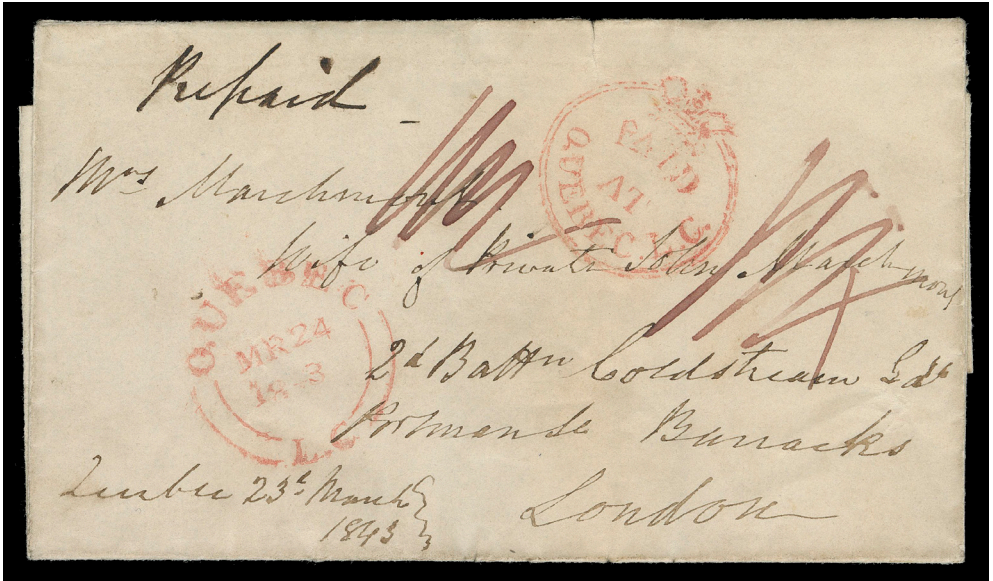 Prepaid
PAID
AT
QUEBEC. L.C.
Mrs Marchmont
Wife of Private John Marchmont
QUEBEC
MR 24
1843
L.C
2d Battn Coldstream Gds
Portmande Barracks
London
Quebec 23d March
1843